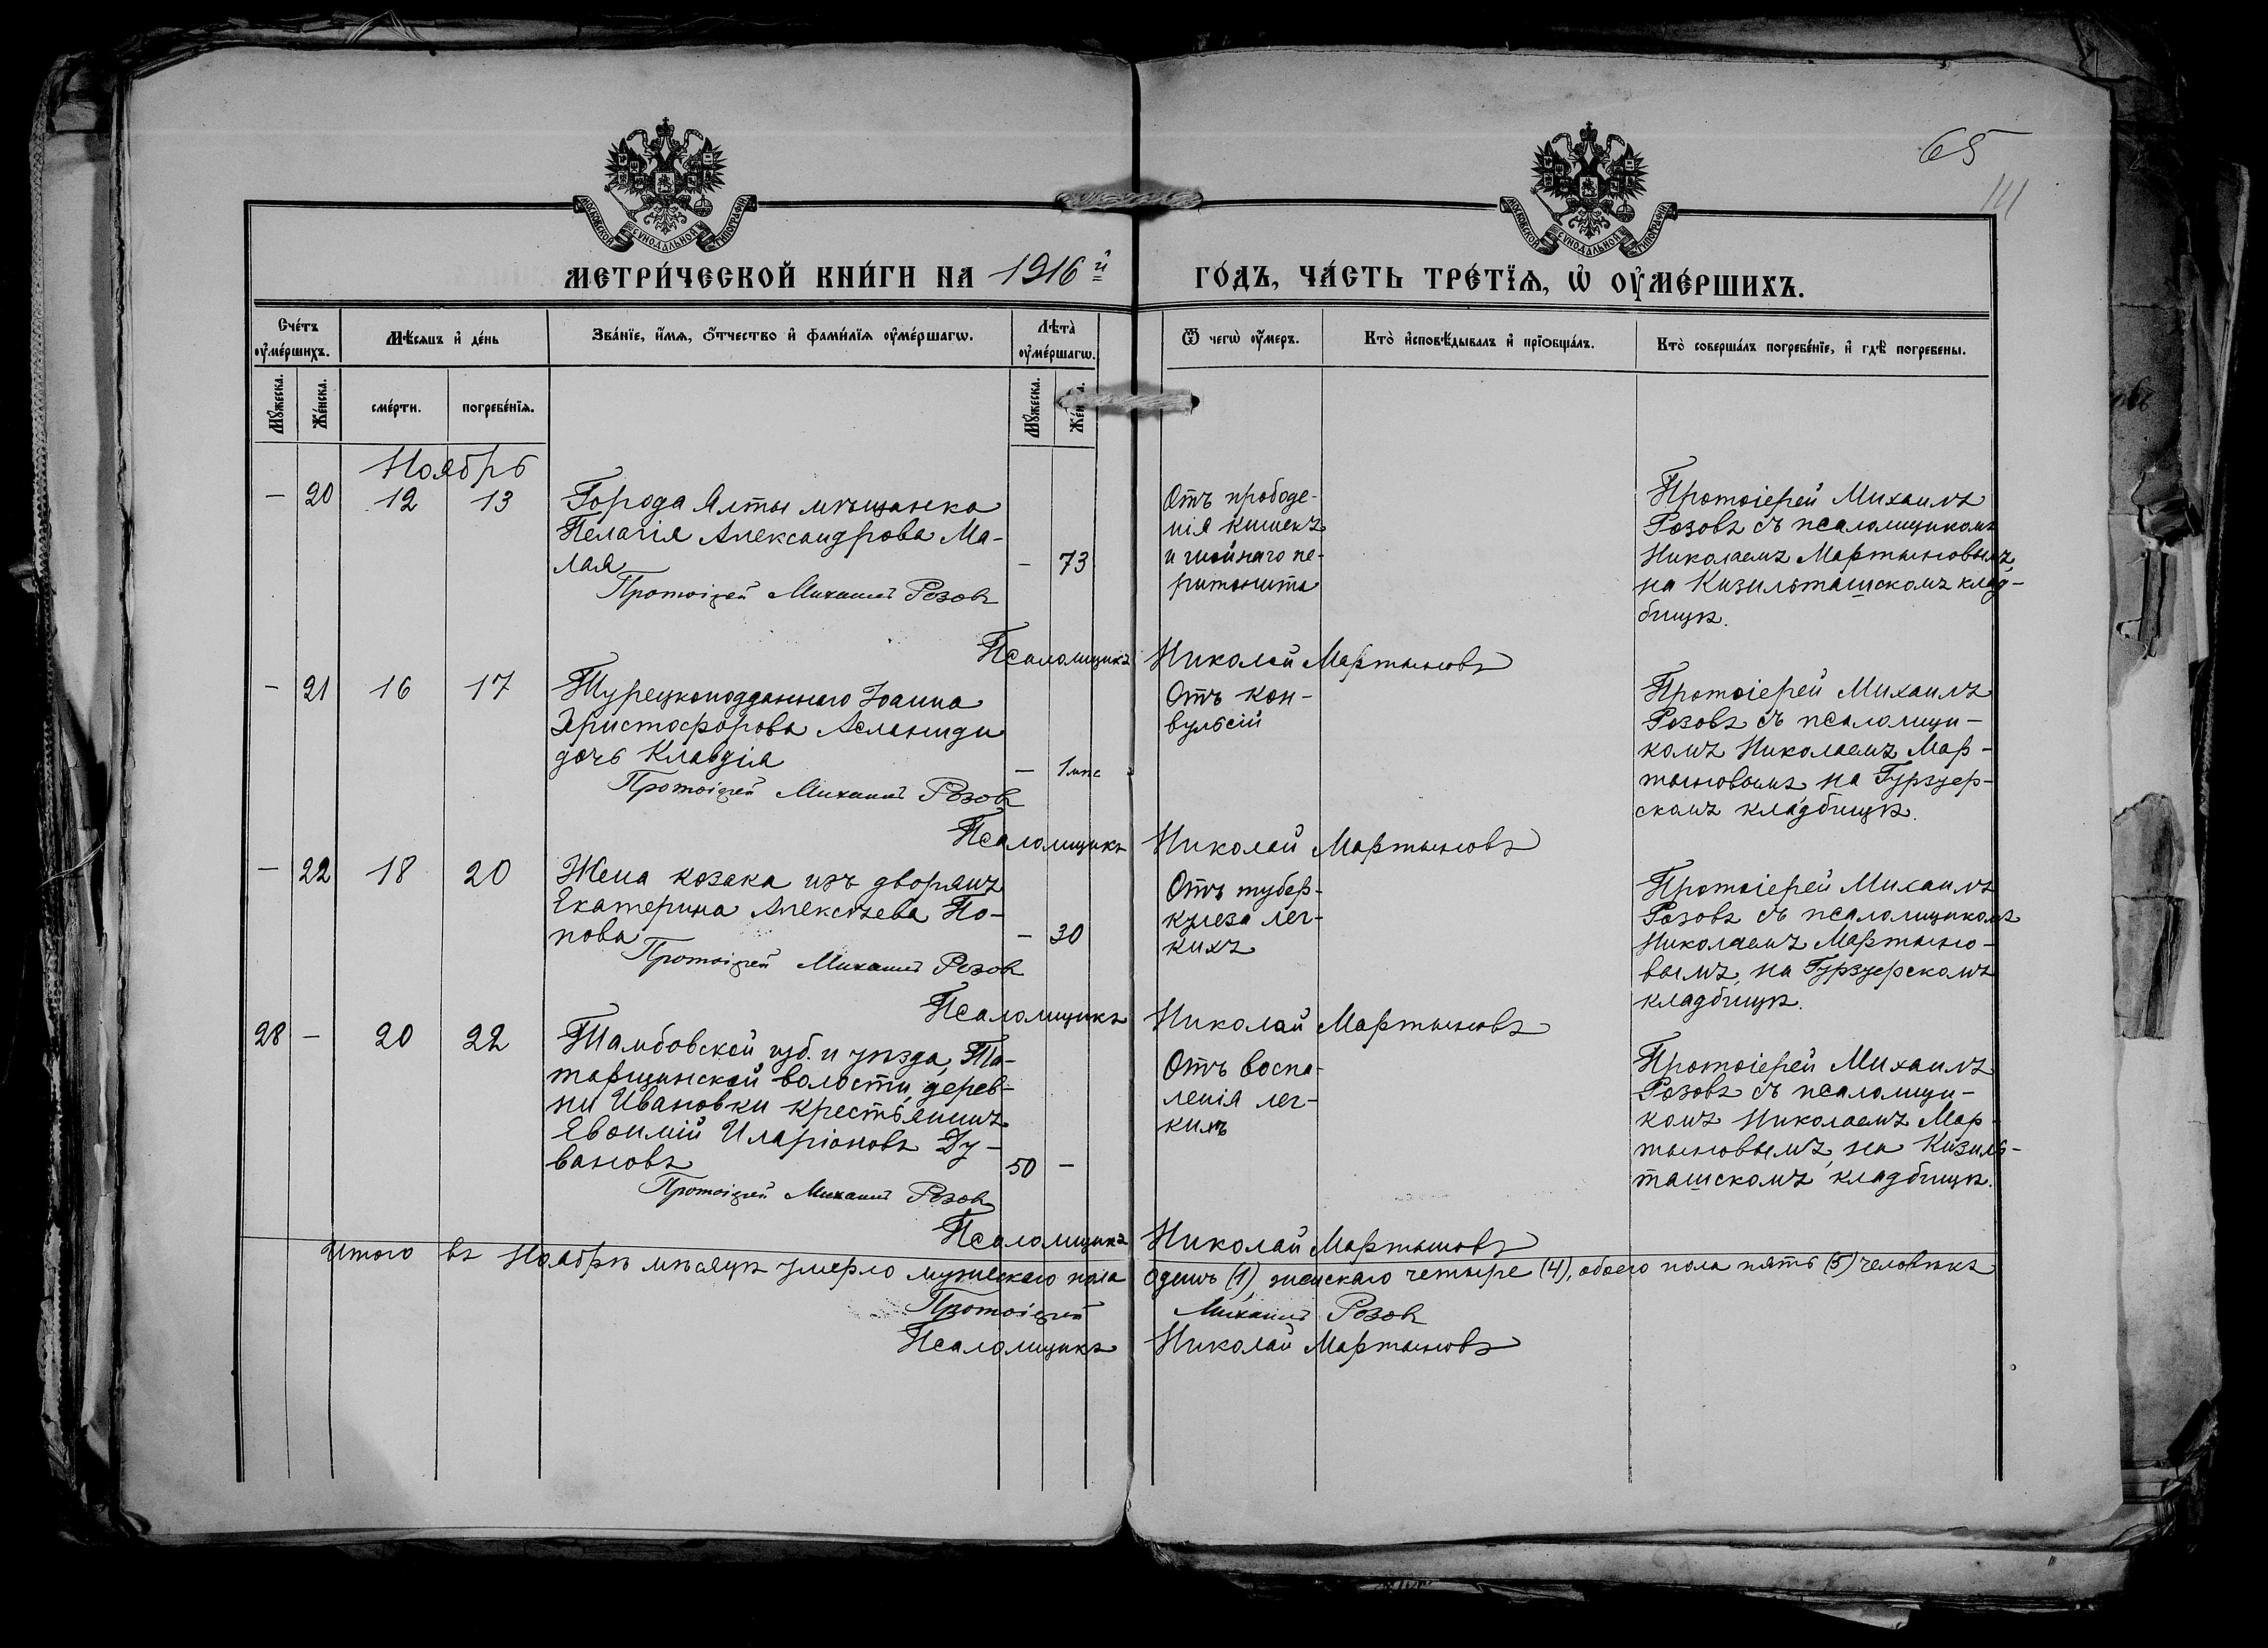 65
111
МОСКОВСКОЙ СѴНОДАЛЬНОЙ ТИПОГРАФІИ
МОСКОВСКОЙ СѴНОДАЛЬНОЙ ТИПОГРАФІИ
МЕТРИ́ЧЕСКОЙ КНИ́ГИ НА 1916й ГО́ДЪ, ЧА́СТЬ ТРЕ́ТЇѦ, Ѡ҆ ОУ҆МЕ́РШИХЪ.
Сче́тъ оу҆ме́ршихъ.
Мѣ́сѧцъ и҆ де́нь
Зва́нїе, и҆́мѧ, ѻ҆́тчество и҆ фами́лїѧ оу҆ме́ршагѡ.
Лѣ́та оу҆ме́ршагѡ.
Ѿ чегѡ̀ оу҆́меръ.
Кто̀ и҆сповѣ́дывалъ и҆ прїѡбща́лъ.
Кто̀ соверша́лъ погребе́нїе, и҆ гдѣ̀ погребены.
Мꙋ́жеска.
Же́нска.
сме́рти.
погребе́нїѧ.
Мꙋ́жеска.
Же́нска.
Ноябрь
— 20 12 13
Города Ялты мѣщанка
Пелагія Александрова Ма-
лая
— 73
Протоіерей Михаилъ Розовъ
Отъ прободе-
нія кишекъ
и гнойнаго пе-
ритонита
Протоіерей Михаилъ
Розовъ съ псаломщикомъ
Николаемъ Мартыновымъ,
на Кизильташскомъ клад-
бищѣ.
Псаломщикъ Николай Мартыновъ
— 21 16 17
Турецкоподданнаго Іоанна
Христофорова Асланиди
дочь Клавдія
— 1 мѣс
Протоіерей Михаилъ Розовъ
Отъ кон-
вульсій
Протоіерей Михаилъ
Розовъ съ псаломщи-
комъ Николаемъ Мар-
тыновымъ, на Гурзуф-
скомъ кладбищѣ.
Псаломщикъ Николай Мартыновъ
— 22 18 20
Жена козака изъ дворянъ
Екатерина Алексѣева По-
пова
— 30
Протоіерей Михаилъ Розовъ
Отъ тубер-
кулеза лег-
кихъ
Протоіерей Михаилъ
Розовъ съ псаломщикомъ
Николаемъ Мартыно-
вымъ, на Гурзуфскомъ
кладбищѣ.
Псаломщикъ Николай Мартыновъ
28 — 20 22
Тамбовской губ. и уѣзда, Та-
тарщинской волости, дерев-
ни Ивановки крестьянинъ
Евѳимій Иларіоновъ Ду-
вановъ
50 —
Протоіерей Михаилъ Розовъ
Отъ воспа-
ленія лег-
кихъ
Протоіерей Михаилъ
Розовъ съ псаломщи-
комъ Николаемъ Мар-
тыновымъ, на Кизиль-
ташскомъ кладбищѣ.
Псаломщикъ Николай Мартыновъ
Итого въ Ноябрѣ мѣсяцѣ умерло мужескаго пола одинъ (1), женскаго четыре (4), обоего пола пять (5) человѣкъ
Протоіерей Михаилъ Розовъ
Псаломщикъ Николай Мартыновъ